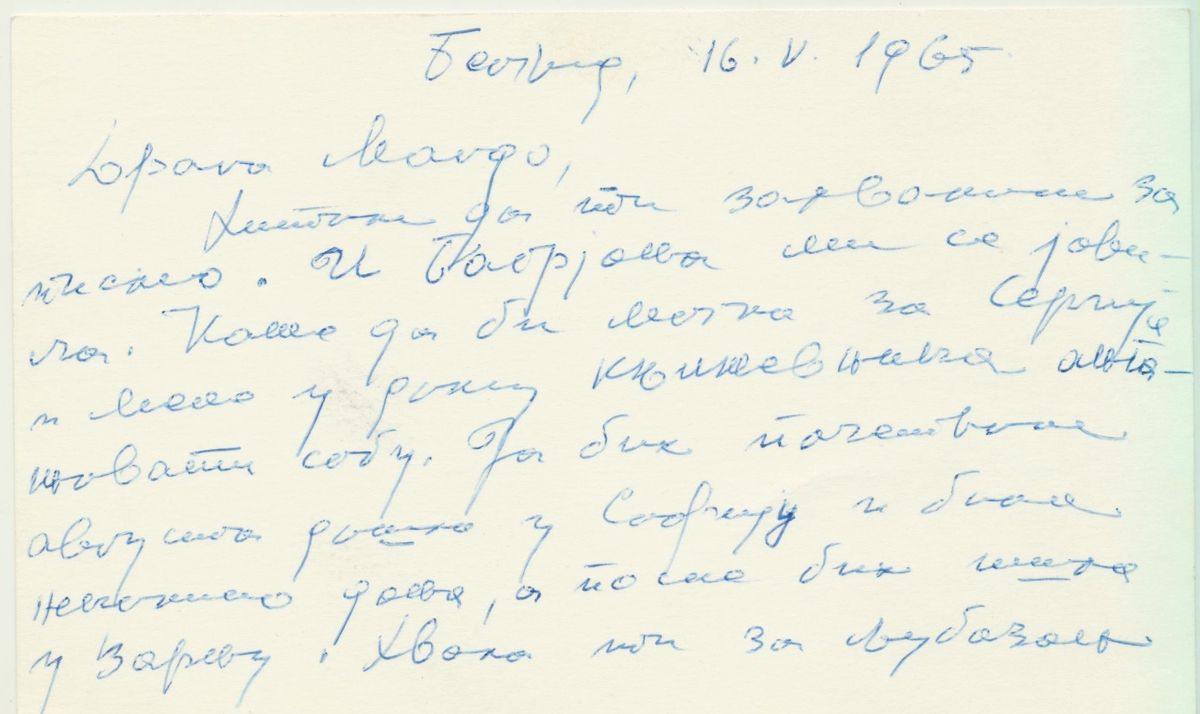 Београд, 16. V. 1965
Драга Магдо,
Хитам да ти захвалим за
писмо. И Габријела ми се јави-
ла. Како да би могла за Сергија
и мене у дому књижевника
собу. Ја бих почетком
августа дошла у Софију и била
неколико дана, а после бих ишла
у Варну. Хвала ти за љубазан